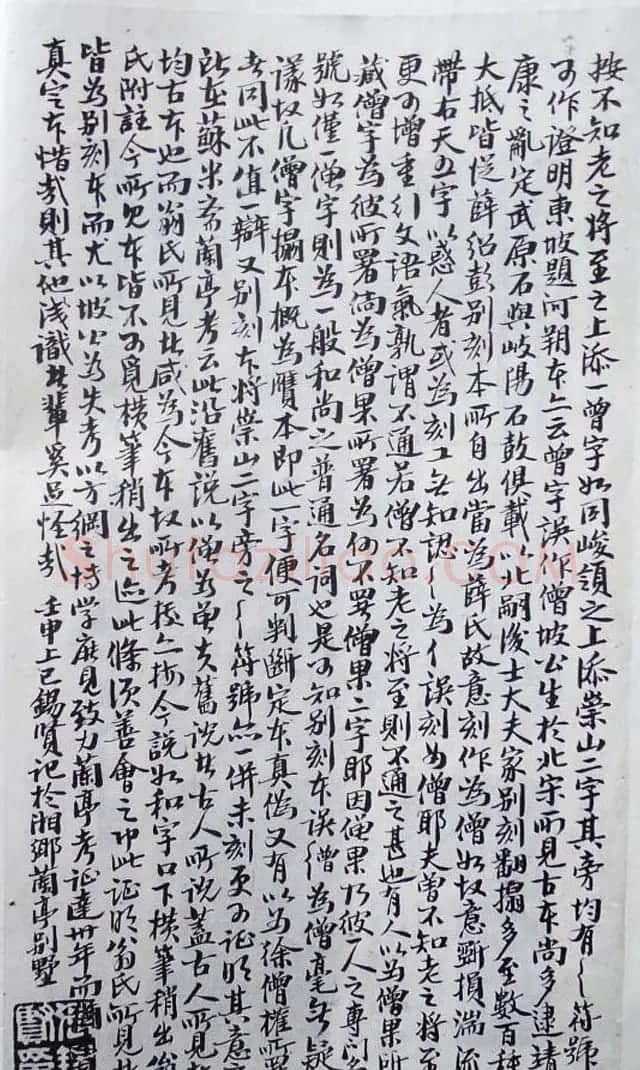 按不知老之将至之上添一曾字如同峻領之上添崇山二字其旁均有〻符號
可作證明東坡題河朔本亦云曾字誤作僧坡公生於北宋所見古本尚多逮靖
康之亂定武原石與岐陽石鼓俱載以北嗣後士大夫家别刻翻搨多至數百種
大抵皆從薛紹彭别刻本所自出當為薛氏故意刻作為僧如故意劖損湍流
帶右天五字以惑人者或為刻工無知認〻為亻誤刻如僧耶夫曾不知老之将至
更可增重行文語氣孰謂不通若僧不知老之将至則不通之甚也有人以為僧果所
藏僧字為彼所署倘為僧果所署為何不署僧果二字耶因僧果乃彼一人之專門名
號如僅一僧字則為一般和尚之普通名詞也是可知别刻本誤〻曾為僧毫無疑
議故凡僧字搨本概為贋本即此一字便可判斷定本真偽又有以為徐僧權所署
者同此不值一辯又别刻本将崇山二字旁之〻符號亦一併未刻更可證明其意
所在蘇米齋蘭亭考云此沿舊說以僧為曾夫舊說皆古人所說蓋古人所見
均古本也而翁氏所見此咸為今本故所考據亦均今說如和字口下橫筆稍出翁
氏附註今所見本皆不可覓橫筆稍出之迹此條須善會之即此證明翁氏所見
皆為别刻本而尤以坡公為失考以方綱之博學廣見致力蘭亭考证達卅年而
真定本惜哉則其他淺識此輩奚足怪哉 壬申上巳錫賢記於湘鄉蘭亭别墅
Shufaziliao.COM